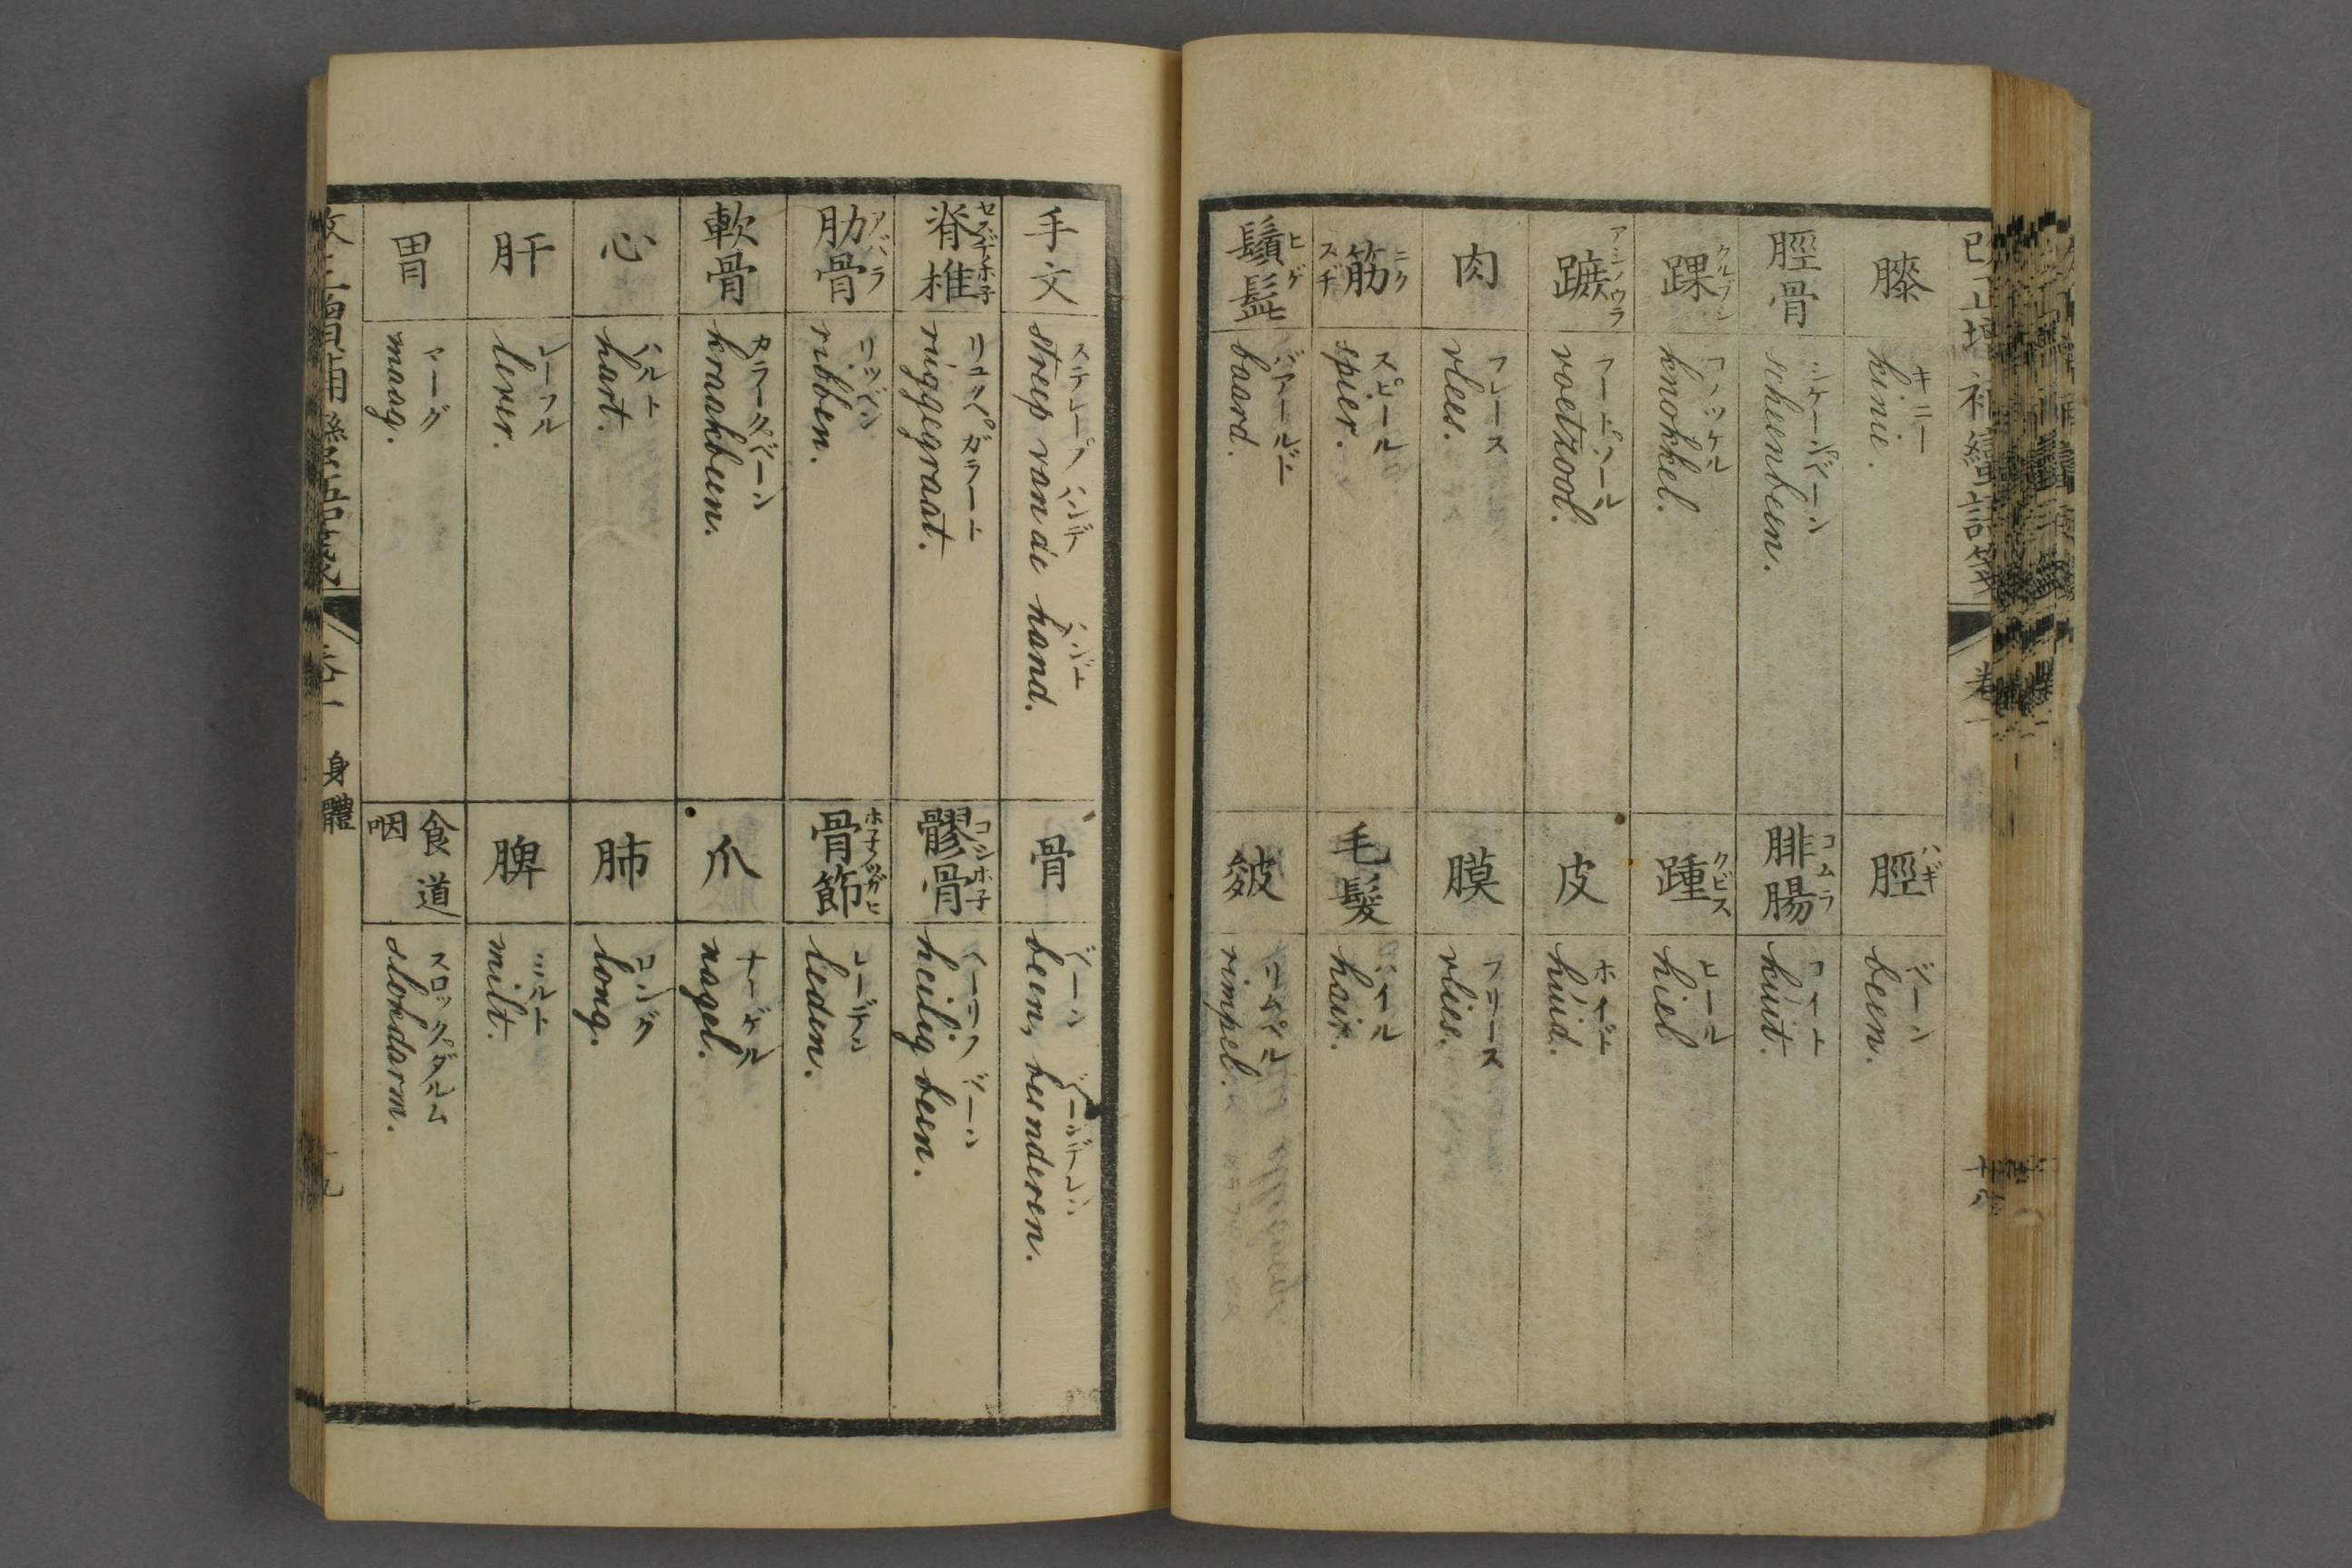 膝
キニー
kinie.
脛 ハギ
ベーン
been.
脛骨
シケーンベーン
scheenbeen.
腓腸 コムラ
コイト
kuit.
踝 クルブシ
コノッケル
knokkel.
踵 クビス
ヒール
hiel
蹠 アシノウラ
フートソール
voetzool.
皮
ホイト
huid.
肉
フレース
vlees.
膜
フリース
vlies.
筋 ニク スヂ
スピール
spier.
毛髪
ハイル
hair.
鬚髭 ヒゲ
バアールド
baard.
皴
リムペル
rimpel.
卷一
十八
手文
ステレープ ハンデ ハンド
streep van de hand.
骨
ベーン ベーンデレン
been, beenderen.
脊椎 セスヂノホ子
リュッペガラート
ruggegraat.
髎骨 コシホ子
ヘーリフ ベーン
heilig been.
肋骨 アバラ
リッベン
ribben.
骨節 ホ子ノツガヒ
レーデン
leden.
軟骨
カラークベーン
kraakbeen.
爪
ナーゲル
nagel.
心
ハルト
hart.
肺
ロング
long.
肝
レーフル
lever.
脾
ミルト
milt.
胃
マーグ
maag.
食道
咽
スロックダルム
slokdarm.
身體